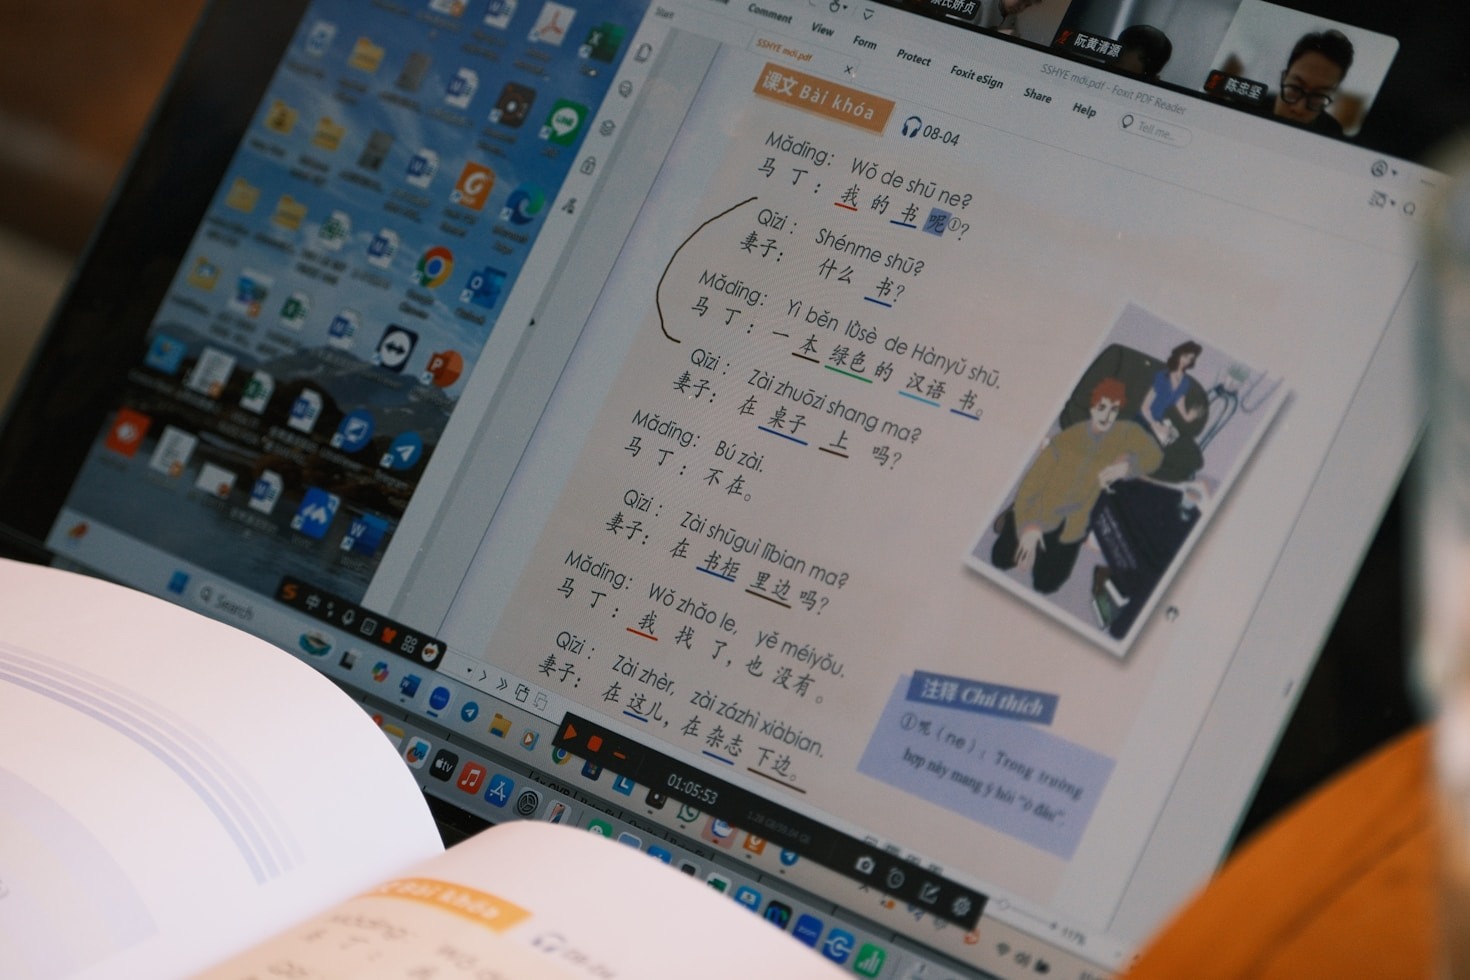 蔡氏娇贞
阮黄清源
陈忠坚
Start
Comment View Form Protect Foxit eSign Share Help
SSHYE mới.pdf - Foxit PDF Reader
Tell me...
SSHYE mới.pdf
课文 Bài khóa
08-04
Mǎdīng: Wǒ de shū ne?
马 丁: 我 的 书 呢①?
Qīzi: Shénme shū?
妻子: 什么 书?
Mǎdīng: Yì běn lǜsè de Hànyǔ shū.
马 丁: 一 本 绿色 的 汉语 书。
Qīzi: Zài zhuōzi shang ma?
妻子: 在 桌子 上 吗?
Mǎdīng: Bú zài.
马 丁: 不 在。
Qīzi: Zài shūguì lǐbian ma?
妻子: 在 书柜 里边 吗?
Mǎdīng: Wǒ zhǎo le, yě méiyǒu.
马 丁: 我 找 了, 也 没有。
Qīzi: Zài zhèr, zài zázhì xiàbian.
妻子: 在 这儿, 在 杂志 下边。
注释 Chú thích
①呢 (ne): Trong trường
hợp này mang ý hỏi "ở đâu".
Search
中
01:05:53
117%
tv
Bài khóa
08-04